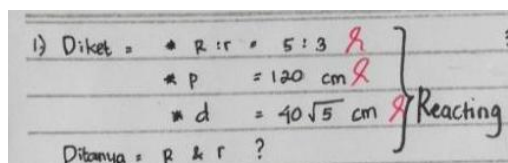 1) Diket = * R : r = 5 : 3
* p = 120 cm
* d = 40√5 cm
Reacting
Ditanya = R & r ?